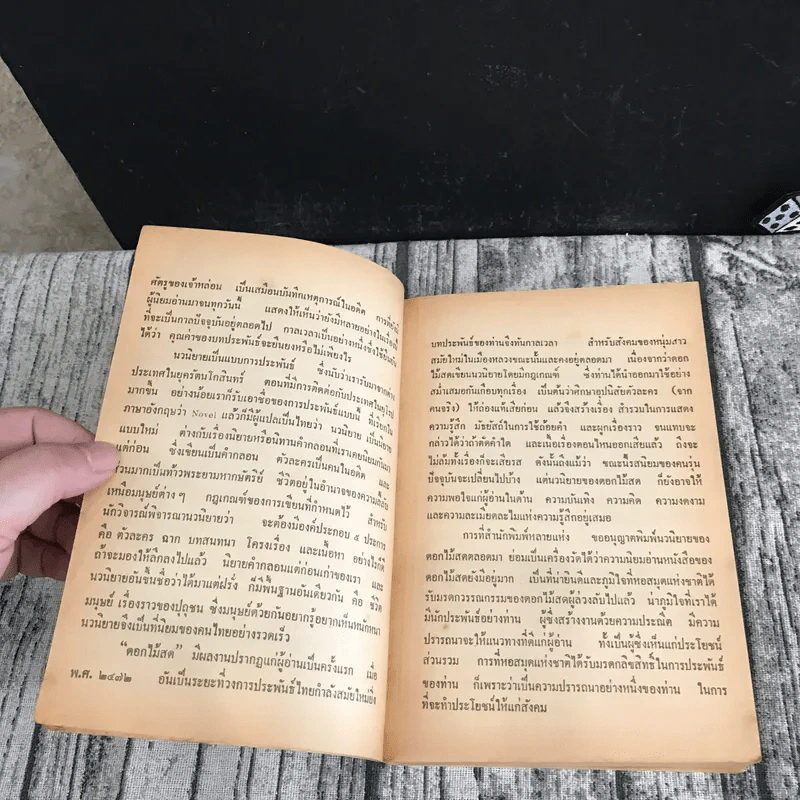 ศัตรูของเจ้าหล่อน เป็นเสมือนบันทึกเหตุการณ์ในอดีต การที่ยังมี
ผู้นิยมอ่านมาจนทุกวันนี้ แสดงให้เห็นว่ายังมีหลายอย่างในเรื่องนี้
ที่จะเป็นกาลปัจจุบันอยู่ตลอดไป กาลเวลาเป็นอย่างหนึ่งซึ่งใช้ยืนยัน
ได้ว่า คุณค่าของบทประพันธ์จะยืนยงหรือไม่เพียงไร
นวนิยายเป็นแบบการประพันธ์ ซึ่งนับว่าเรารับมาจากต่าง
ประเทศในยุครัตนโกสินทร์ ตอนที่มีการติดต่อกับประเทศในยุโรป
มากขึ้น อย่างน้อยเราก็รับเอาชื่อของการประพันธ์แบบนี้ ที่เรียกใน
ภาษาอังกฤษว่า Novel แล้วก็มีผู้แปลเป็นไทยว่า นวนิยาย เป็นนิยาย
แบบใหม่ ต่างกับเรื่องนิยายหรือนิทานคำกลอนที่เราเคยนิยมกันมา
แต่ก่อน ซึ่งเขียนเป็นคำกลอน ตัวละครเป็นคนในอดีต และ
ส่วนมากเป็นท้าวพระยามหากษัตริย์ ชีวิตอยู่ในอำนาจของความลี้ลับ
เหนือมนุษย์ต่างๆ กฎเกณฑ์ของการเขียนที่กำหนดไว้ สำหรับ
นักวิจารณ์พิจารณานวนิยายว่า จะต้องมีองค์ประกอบ ๕ ประการ
คือ ตัวละคร ฉาก บทสนทนา โครงเรื่อง และเนื้อหา อย่างไรก็ดี
ถ้าจะมองให้ลึกลงไปแล้ว นิยายคำกลอนแต่ก่อนเก่าของเรา และ
นวนิยายอันขึ้นชื่อว่าได้มาแต่ฝรั่ง ก็มีพื้นฐานอันเดียวกัน คือ ชีวิต
มนุษย์ เรื่องราวของปุถุชน ซึ่งมนุษย์ด้วยกันอยากรู้อยากเห็นหนักหนา
นวนิยายจึงเป็นที่นิยมของคนไทยอย่างรวดเร็ว
“ดอกไม้สด” มีผลงานปรากฏแก่ผู้อ่านเป็นครั้งแรก เมื่อ
พ.ศ. ๒๔๗๒ อันเป็นระยะที่วงการประพันธ์ไทยกำลังสมัยใหม่ยิ่ง
บทประพันธ์ของท่านจึงทันกาลเวลา สำหรับสังคมของหนุ่มสาว
สมัยใหม่ในเมืองหลวงขณะนั้นและคงอยู่ตลอดมา เนื่องจากว่าดอก
ไม้สดเขียนนวนิยายโดยมีกฎเกณฑ์ ซึ่งท่านได้นำออกมาใช้อย่าง
สม่ำเสมอกันเกือบทุกเรื่อง เป็นต้นว่าศึกษาอุปนิสัยตัวละคร (จาก
คนจริง) ให้ถ่องแท้เสียก่อน แล้วจึงสร้างเรื่อง สำรวมในการแสดง
ความรู้สึก มัธยัสถ์ในการใช้ถ้อยคำ และผูกเรื่องราว จนแทบจะ
กล่าวได้ว่าถ้าตัดคำใด และเนื้อเรื่องตอนไหนออกเสียแล้ว ถึงจะ
ไม่ล้มทั้งเรื่องก็จะเสียรส ดังนั้นถึงแม้ว่า ขณะนี้รสนิยมของคนรุ่น
ปัจจุบันจะเปลี่ยนไปบ้าง แต่นวนิยายของดอกไม้สด ก็ยังอาจให้
ความพอใจแก่ผู้อ่านในด้าน ความบันเทิง ความคิด ความงดงาม
และความละเมียดละไมแห่งความรู้สึกอยู่เสมอ
การที่สำนักพิมพ์หลายแห่ง ขออนุญาตพิมพ์นวนิยายของ
ดอกไม้สดตลอดมา ย่อมเป็นเครื่องวัดได้ว่าความนิยมอ่านหนังสือของ
ดอกไม้สดยังมีอยู่มาก เป็นที่น่ายินดีและภูมิใจที่หอสมุดแห่งชาติได้
รับมรดกวรรณกรรมของดอกไม้สดผู้ล่วงลับไปแล้ว น่าภูมิใจที่เราได้
มีนักประพันธ์อย่างท่าน ผู้ซึ่งสร้างงานด้วยความประณีต มีความ
ปรารถนาจะให้แนวทางที่ดีแก่ผู้อ่าน ทั้งเป็นผู้ซึ่งเห็นแก่ประโยชน์
ส่วนรวม การที่หอสมุดแห่งชาติได้รับมรดกลิขสิทธิ์ในการประพันธ์
ของท่าน ก็เพราะว่าเป็นความปรารถนาอย่างหนึ่งของท่าน ในการ
ที่จะทำประโยชน์ให้แก่สังคม